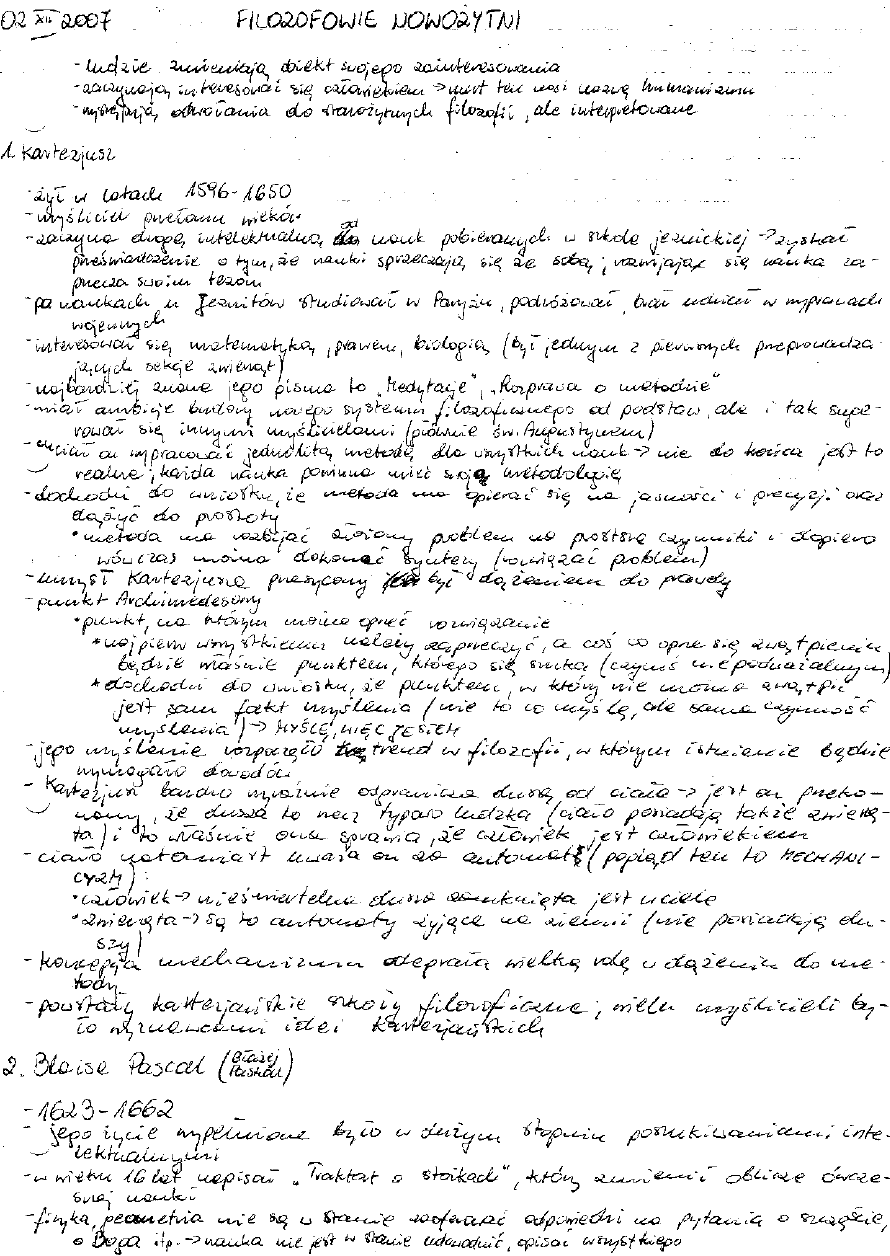 02 XII 2007 FILOZOFOWIE NOWOŻYTNI
- ludzie zmieniają obiekt swojego zainteresowania
- zaczynają interesować się człowiekiem → nurt ten nosi nazwę humanizmu
- występują odwołania do starożytnych filozofii, ale interpretowane
1. Kartezjusz
- żył w latach 1596-1650
- myśliciel przełomu wieków
- zaczyna drogę intelektualną od nauk pobieranych w szkole jezuickiej → zyskał
przeświadczenie o tym, że nauki sprzeczają się ze sobą; rozwijając się nauka za-
przecza swoim tezom
- po naukach u Jezuitów studiował w Paryżu, podróżował, brał udział w wyprawach
wojennych
- interesował się matematyką, prawem, biologią (był jednym z pierwszych przeprowadza-
jących sekcje zwierząt)
- najbardziej znane jego pisma to "Medytacje", "Rozprawa o metodzie"
- miał ambicje budowy nowego systemu filozoficznego od podstaw, ale i tak suge-
rował się innymi myślicielami (głównie św. Augustynem)
- chciał on wypracować jednolitą metodę dla wszystkich nauk → nie do końca jest to
realne; każda nauka powinna mieć swoją metodologię
- dochodzi do wniosku, że metoda ma opierać się na jasności i precyzji oraz
dążyć do prostoty
• metoda ma rozbijać złożony problem na prostsze czynniki i dopiero
wówczas można dokonać syntezy (rozwiązać problem)
- umysł Kartezjusza przesycony był dążeniem do prawdy
- punkt Archimedesowy
• punkt, na którym można oprzeć rozwiązanie
• najpierw wszystkiemu należy zaprzeczyć, a coś co oprze się zwątpieniu
będzie właśnie punktem, którego się szuka (czymś niepodważalnym)
• dochodzi do wniosku, że punktem, w który nie można zwątpić
jest sam fakt myślenia (nie to co myślę, ale sama czynność
myślenia) → MYŚLĘ, WIĘC JESTEM
- jego myślenie rozpoczęło trend w filozofii, w którym istnienie będzie
wymagało dowodów
- Kartezjusz bardzo wyraźnie odgranicza duszę od ciała → jest on przeko-
nany, że dusza to rzecz typowo ludzka (ciało posiadają także zwierzę-
ta) i to właśnie ona sprawia, że człowiek jest człowiekiem
- ciało natomiast uważa on za automat (pogląd ten to MECHANI-
CYZM):
• człowiek → nieśmiertelna dusza zamknięta jest w ciele
• zwierzęta → są to automaty żyjące na ziemii (nie posiadają du-
szy)
- koncepcja mechanizmu odegrała wielką rolę w dążeniu do me-
tody
- powstały kartezjańskie szkoły filozoficzne; wielu myślicieli by-
ło wyznawcami idei kartezjańskich
2. Blaise Pascal (Błażej Paskal)
- 1623-1662
- jego życie wypełnione było w dużym stopniu poszukiwaniami inte-
lektualnymi
- w wieku 16 lat napisał "Traktat o stożkach", który zmienił oblicze ówcze-
snej nauki
- fizyka, geometria nie są w stanie zaoferować odpowiedzi na pytania o szczęście,
o Boga itp. → nauka nie jest w stanie udowodnić, opisać wszystkiego